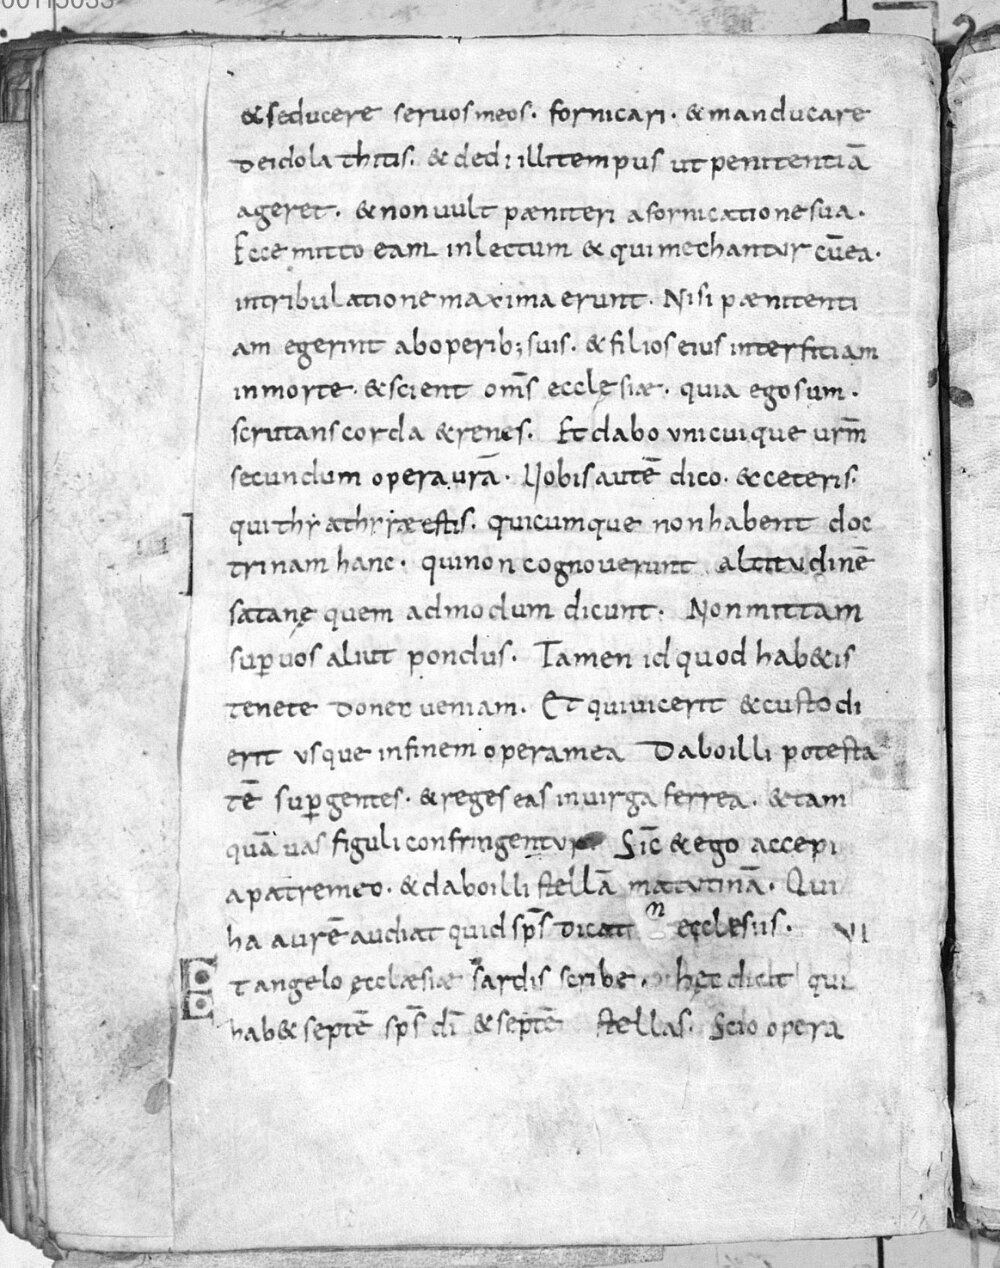 & seducere servos meos. fornicari. & manducare
de idolathitis. & dedi illi tempus ut penitentiā
ageret. & non vult pæniteri a fornicatione sua.
Ecce mitto eam in lectum & qui mechantur cū ea.
in tribulatione maxima erunt. Nisi pænitenti
am egerint ab operib; suis. & filios eius interfitiam
in morte. & scient om̄s ecclęsiæ. quia ego sum.
scrutans corda & renes. Et dabo unicuique urm̄
secundum opera urā. Uobis autē dico. & ceteris.
qui thyathyræ estis. quicumque non habent doc
trinam hanc. qui non cognoverunt altitudinē
satanę quem ad modum dicunt. Non mittam
sup uos aliut pondus. Tamen id quod hab&is
tenete donec veniam. Et qui vicerit & custodi
erit usque in finem opera mea Dabo illi potesta
tē sup gentes. & reges eas in virga ferrea. & tam
quā uas figuli confringentur Sic̄ & ego accepi
a patre meo. & dabo illi stellā matutinā. Qui
ha aurē audiat quid sp̄s dicat ecclesiis. VI
t angelo ęcclæsiæ sardis scribe. hęc dicit qui
hab& septē sp̄s dī & septē stellas. Scio opera